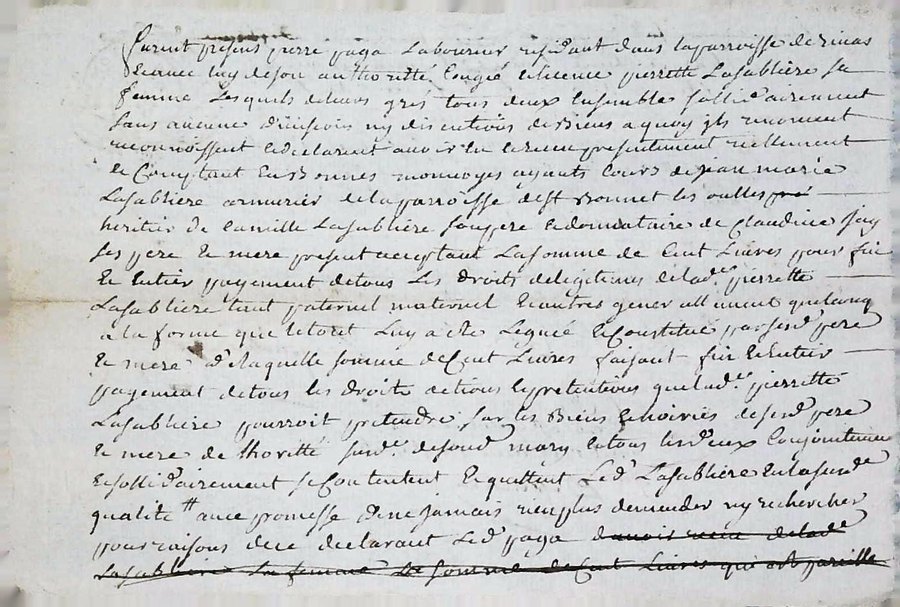 furent presens pierre paga Laboureur residant dans la parroisse de rivas
Lequel luy de son authoritté Congié et licence pierrette Lasablière sa
femme Lesquels de leurs grés tous deux Ensemble sollidairement
sans aucune divisions ny discutions de Biens a quoy ils renoncent
reconnoissent et declarent avoir Eu et receu presentement reellement
et Comptant En Bonnes monnoyes ayants Cours de jean marie
Lasabliere armurier de la parroisse de st Bonnet les oulles
heritier de Camille Lasabliere son pere et donnataire de Claudine
ses pere et mere present acceptant La somme de Cent Livres pour fin
et Entier payement de tous Les Droits de legitimes de lad.e pierrette
Lasabliere tant paternel maternel et autres generallement quelconq
a la forme que le tout Luy a été Legué et Constitué par sesd. pere
et mere de laquelle somme de Cent Livres faisant fin et Entier
payement de tous les droits actions et pretentions que lad.e pierrette
Lasabliere pourroit pretendre sur les Biens et hoiries de sesd. pere
et mere de Lhoritté susd.e de sond. mary et tous les deux Conjointement
et sollidairement se Contentent et quittent Led. Lasabliere En la susd.e
qualité avec promesse de ne jamais rien plus demander ny rechercher
pour raisons de ce declarant Led. paga d'avoir receu de lad.e
Lasabliere sa femme La somme de Cent Livres qui est pareille